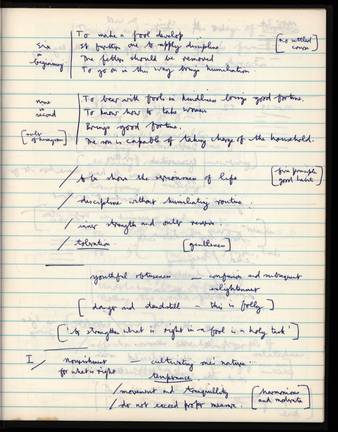 To make a fool develop
six in beginning
It furthers one to apply discipline.
[no settled course]
The fetters should be removed
To go on in this way brings humiliation.
nine in second
[ruler of hexagram]
To bear with fools in kindliness brings good fortune.
To know how to take women
Brings good fortune.
The son is capable of taking charge of the household.
/ to be shown the seriousness of life
[firm principle good habit]
/ discipline without humiliating routine.
/ inner strength and outer reserve.
/ toleration [gentleness]
youthful obtuseness — confusion and subsequent enlightenment
[danger and standstill — this is folly.]
['To strengthen what is right in a fool is a holy task']
I/ nourishment for what is right — cultivating one's nature..
temperance
/ movement and tranquillity
[harmonious and moderate]
/ do not exceed proper measure.